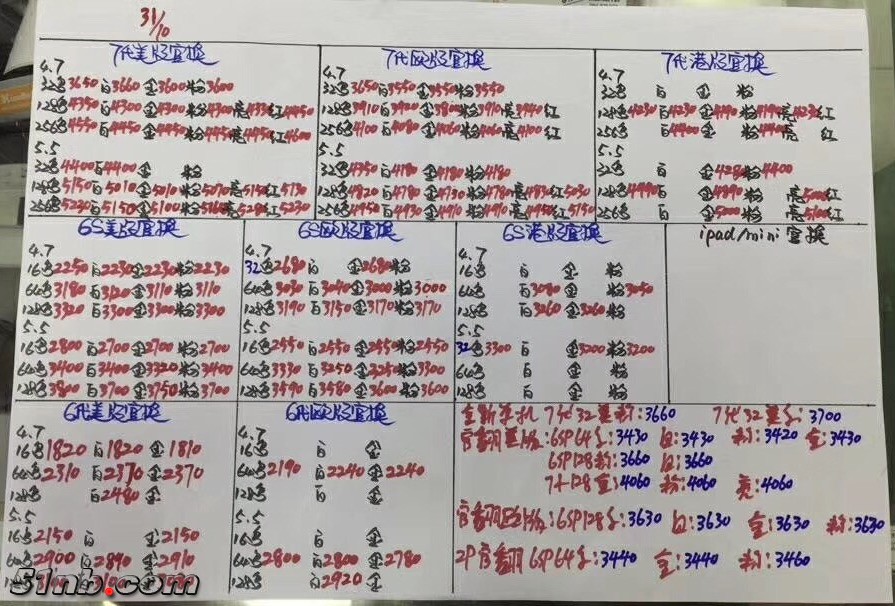 31/10
7代美版官换
4.7
32色3650白3660金3600粉3600
128色4350白4300金4300粉4300亮4330红4450
256色4550白4450金4450粉4450亮4450红4600
5.5
32色4400白4400金 粉
128色5150白5010金5010粉5070亮5150红5130
256色5230白5150金5100粉5160亮5280红5230
7代欧版官换
4.7
32色3650白3550金3550粉3550
128色3910白3920金3800粉3910亮3940红
256色4100白4080金4060粉4060亮4100红
5.5
32色4350白4180金4180粉4180
128色4820白4780金4730粉4780亮4830红5030
256色4950白4930金4910粉4910亮4950红5150
7代港版官换
4.7
32色 白 金 粉
128色4230白4230金4190粉4190亮4230红
256色 白4400金 粉4400亮 红
5.5
32色 白 金4280粉4400
128色4990白 金4890粉 亮5000红
256色 白 金5000粉 亮5100红
6S美版官换
4.7
16色2250白2230金2230粉2230
64色3180白3120金3110粉3110
128色3320白3300金3300粉3300
5.5
16色2800白2700金2700粉2700
64色3400白3400金3320粉3400
128色3800白3700金3750粉3700
6S欧版官换
4.7
32色2680白 金2680粉
64色3030白3040金3000粉3000
128色3190白3150金3170粉3170
5.5
16色2550白2550金2550粉2550
64色3330白3250金3250粉3300
128色3590白3580金3600粉3600
6S港版官换
4.7
16色 白 金 粉
64色 白3080金 粉3050
128色 白3260金3260粉
5.5
32色3300白 金3200粉3200
64色 白 金 粉
128色 白 金 粉
ipad/mini官换
6代美版官换
4.7
16色1820白1820金1810
64色2310白2370金2370
128色 白2480金
5.5
16色2150白 金2150
64色2900白2890金2910
6代欧版官换
4.7
16色 白 金
64色2190白2240金2240
128色 白 金
5.5
16色 白 金
64色2800白2800金2780
128色 白2920金
全新单机 7代32美粉:3660 7代32美金:3700
官翻美版:6SP64金:3430 白:3430 粉:3420 金:3430
6SP128粉:3660 白:3660
7+128金:4060 粉:4060 亮:4060
官翻欧版:6SP128金:3630 白:3630 金:3630 粉:3630
2P官翻6SP64金:3440 金:3440 粉:3460
51nb.com